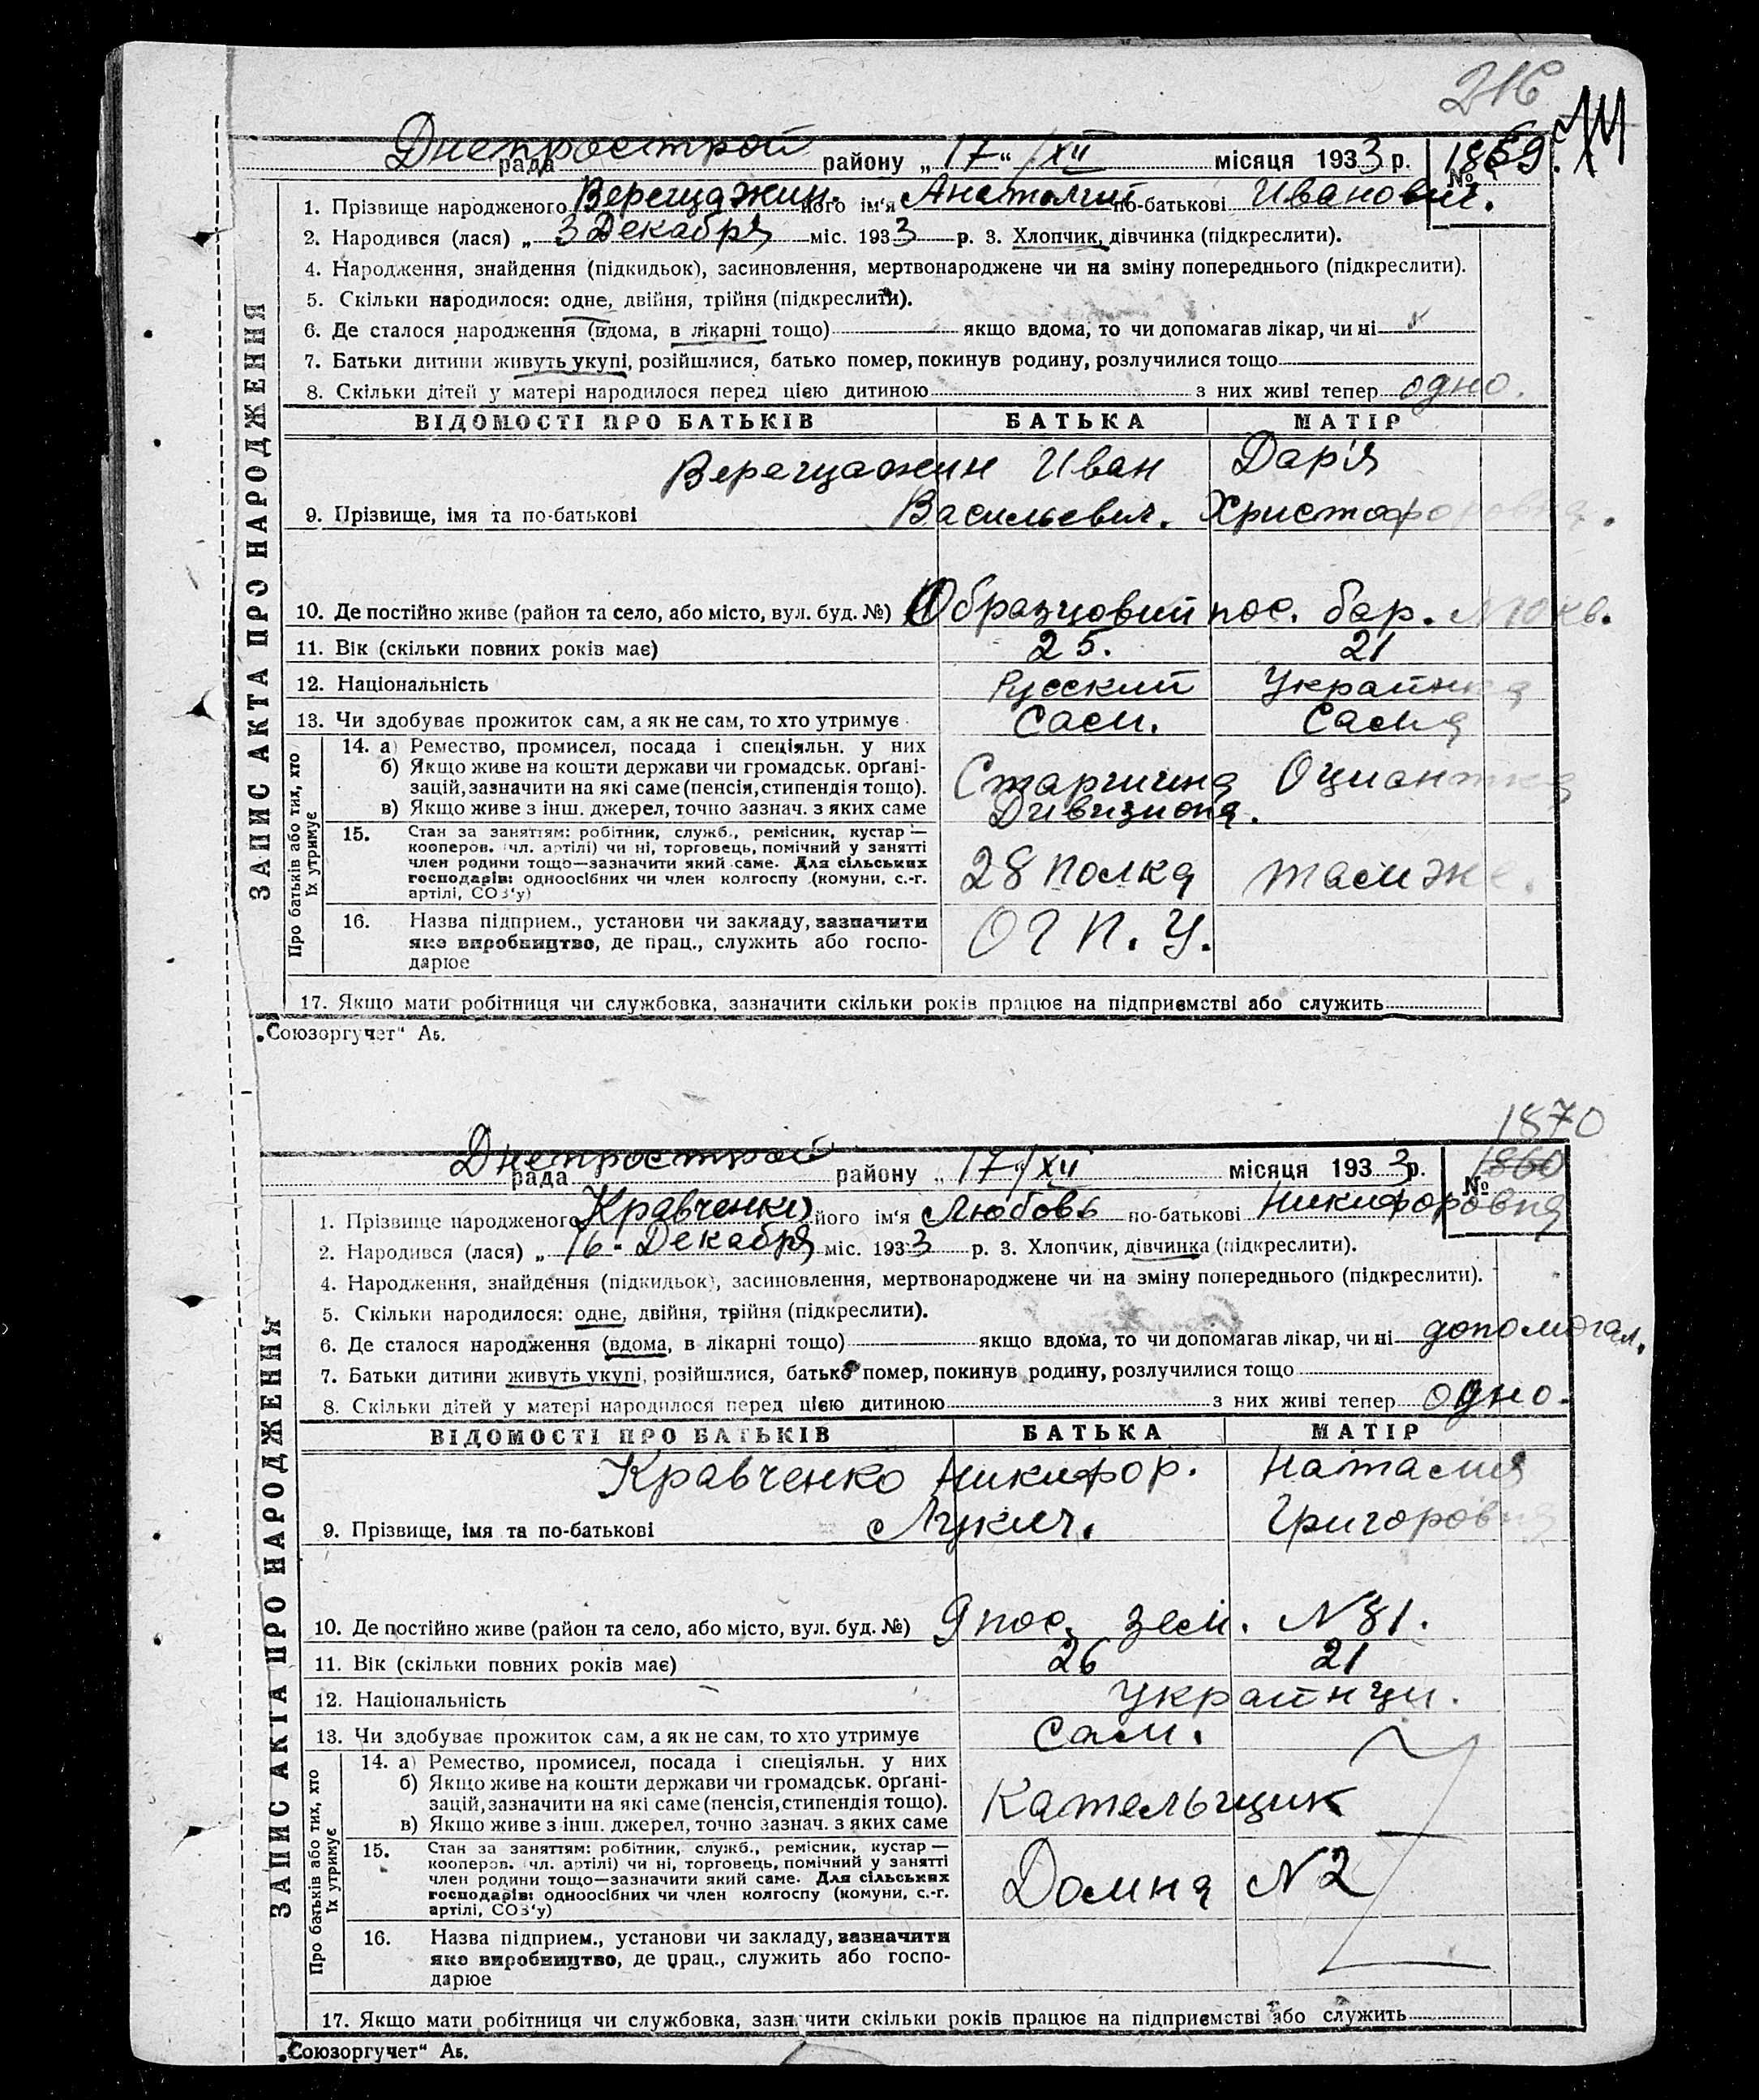 216
Днепрострой
рада району „17“ /XII місяця 1933 р. № 1869.
1. Прізвище народженого Верещажин. його ім‘я Анатолий по-батькові Иванович.
2. Народився (лася) „ 3 Декабря міс. 1933 р. 3. Хлопчик, дівчинка (підкреслити).
4. Народження, знайдення (підкидьок), засиновлення, мертвонароджене чи на зміну попереднього (підкреслити).
5. Скільки народилося: одне, двійня, трійня (підкреслити).
6. Де сталося народження (вдома, в лікарні тощо) якщо вдома, то чи допомагав лікар, чи ні
7. Батьки дитини живуть укупі, розійшлися, батько помер, покинув родину, розлучилися тощо
8. Скільки дітей у матері народилося перед цією дитиною з них живі тепер одно.
ЗАПИС АКТА ПРО НАРОДЖЕННЯ
ВІДОМОСТІ ПРО БАТЬКІВ БАТЬКА МАТІР
Верещажин Иван Дар'я
9. Прізвище, імя та по-батькові Васильевич. Христофоровна.
10. Де постійно живе (район та село, або місто, вул. буд. №) Образцовий пос. бар. №10 кв.
11. Вік (скільки повних років має) 25. 21
12. Національність Русский Украинка
13. Чи здобуває прожиток сам, а як не сам, то хто утримує Сам. Сама
Про батьків або тих, хто їх утримує
14. а) Ремество, промисел, посада і спеціяльн. у них
б) Якщо живе на кошти держави чи громадськ. органі-
зацій, зазначити на які саме (пенсія, стипендія тощо). Старшина
в) Якщо живе з інш. джерел, точно зазнач. з яких саме Дивизиона.
15. Стан за заняттям: робітник, служб., ремісник, кустар —
кооперов. (чл. артілі) чи ні, торговець, помічний у занятті
член родини тощо—зазначити який саме. Для сільських 28 полка там же.
господарів: одноосібних чи член колгоспу (комуни, с.-г.
артілі, СОЗ‘у)
16. Назва підприєм., установи чи закладу, зазначити
яке виробництво, де прац., служить або госпо- ОГП.У.
дарює
17. Якщо мати робітниця чи службовка, зазначити скільки років працює на підприємстві або служить
„Союзоргучет“ Аб.
1870
Днепрострой
рада району „17“/XII місяця 1933 р. № 1860
1. Прізвище народженого Кравченко його ім‘я Любовь по-батькові Никифоровна
2. Народився (лася) „ 16. Декабря міс. 1933 р. 3. Хлопчик, дівчинка (підкреслити).
4. Народження, знайдення (підкидьок), засиновлення, мертвонароджене чи на зміну попереднього (підкреслити).
5. Скільки народилося: одне, двійня, трійня (підкреслити).
6. Де сталося народження (вдома, в лікарні тощо) якщо вдома, то чи допомагав лікар, чи ні допомогал.
7. Батьки дитини живуть укупі, розійшлися, батько помер, покинув родину, розлучилися тощо
8. Скільки дітей у матері народилося перед цією дитиною з них живі тепер одно.
ЗАПИС АКТА ПРО НАРОДЖЕННЯ
ВІДОМОСТІ ПРО БАТЬКІВ БАТЬКА МАТІР
Кравченко Никифор. Наталия
9. Прізвище, імя та по-батькові Лукич. Григоровна
10. Де постійно живе (район та село, або місто, вул. буд. №) 9 пос. зем. №81.
11. Вік (скільки повних років має) 26 21
12. Національність Украинци.
13. Чи здобуває прожиток сам, а як не сам, то хто утримує Сам.
Про батьків або тих, хто їх утримує
14. а) Ремество, промисел, посада і спеціяльн. у них
б) Якщо живе на кошти держави чи громадськ. органі-
зацій, зазначити на які саме (пенсія, стипендія тощо). Кательщик
в) Якщо живе з інш. джерел, точно зазнач. з яких саме
15. Стан за заняттям: робітник, служб., ремісник, кустар —
кооперов. (чл. артілі) чи ні, торговець, помічний у занятті
член родини тощо—зазначити який саме. Для сільських Домна №2
господарів: одноосібних чи член колгоспу (комуни, с.-г.
артілі, СОЗ‘у)
16. Назва підприєм., установи чи закладу, зазначити
яке виробництво, де прац., служить або госпо-
дарює
17. Якщо мати робітниця чи службовка, зазначити скільки років працює на підприємстві або служить
„Союзоргучет“ Аб.